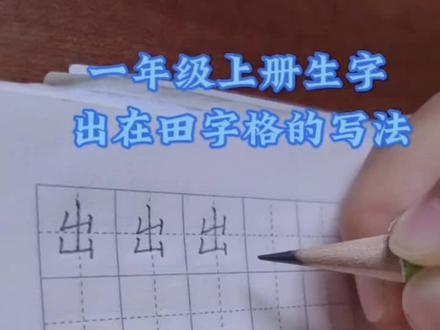 一年级上册生字
出在田字格的写法
出 出 出